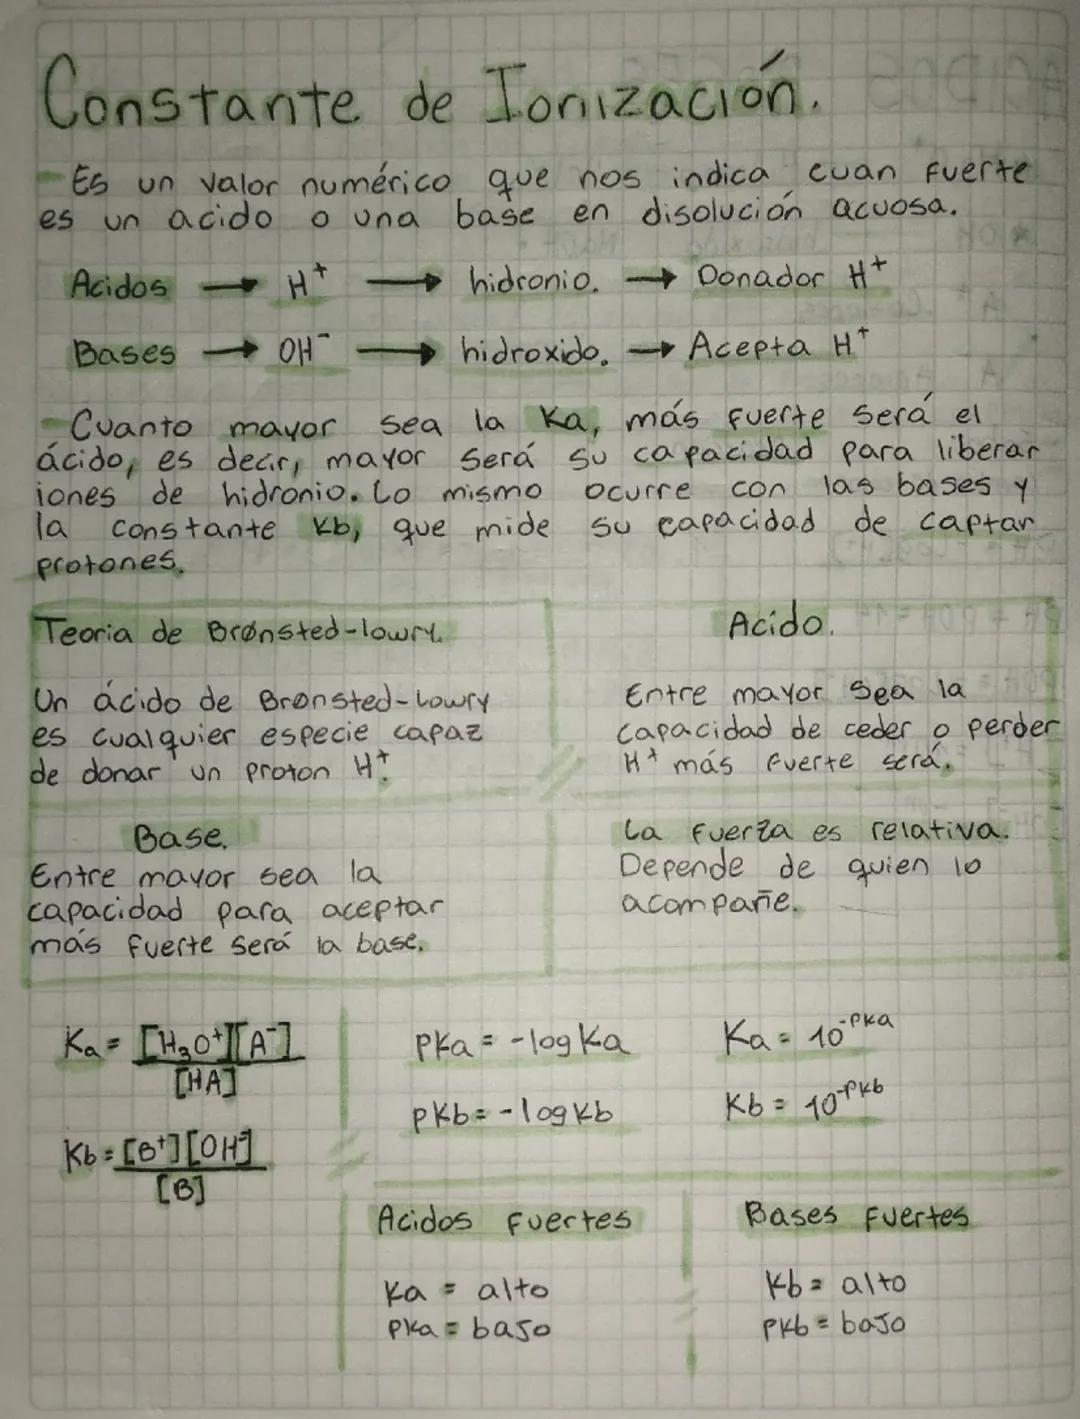 Constante de Ionización.
- Es un valor numérico que nos indica cuan fuerte
es un acido o una base en disolución acuosa.
Acidos → H⁺ → hidronio. → Donador H⁺
Bases → OH⁻ → hidroxido. → Acepta H⁺
- Cuanto mayor sea la Ka, más fuerte será el
ácido, es decir, mayor será su capacidad para liberar
iones de hidronio. Lo mismo ocurre con las bases y
la constante Kb, que mide su capacidad de captar
protones.
Teoria de Brønsted-lowry.
Un ácido de Brønsted-Lowry
es cualquier especie capaz
de donar un proton H⁺.
Acido.
Entre mayor sea la
capacidad de ceder o perder
H⁺ más fuerte será.
Base.
Entre mayor sea la
capacidad para aceptar
más fuerte será la base.
La fuerza es relativa.
Depende de quien lo
acompañe.
Ka = [H₃O⁺][A⁻]
[HA]
Kb = [B⁺][OH⁻]
[B]
pKa = -log Ka
pKb = -log Kb
Ka = 10^-pKa
Kb = 10^-pKb
Acidos fuertes
Ka = alto
pKa = bajo
Bases fuertes
Kb = alto
pKb = bajo